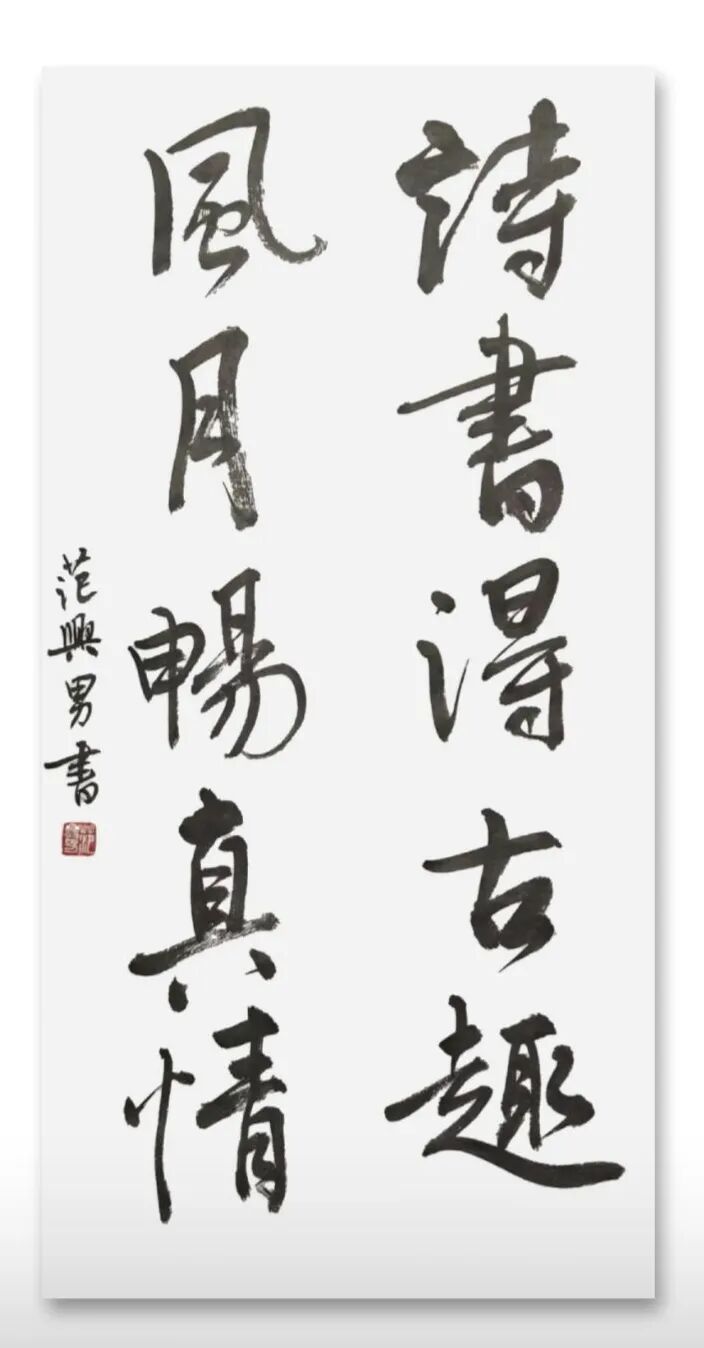 詩書得古趣
風月暢真情
范興男書